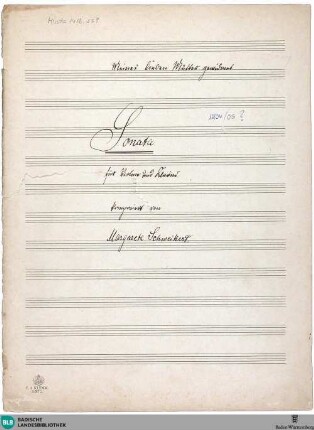 Meiner lieben Mutter gewidmet
1904/05 ?
Sonata
für Violine und Klavier
komponiert von
Margarete Schweikert
BLB BADISCHE
LANDESBIBLIOTHEK
Baden-Württemberg